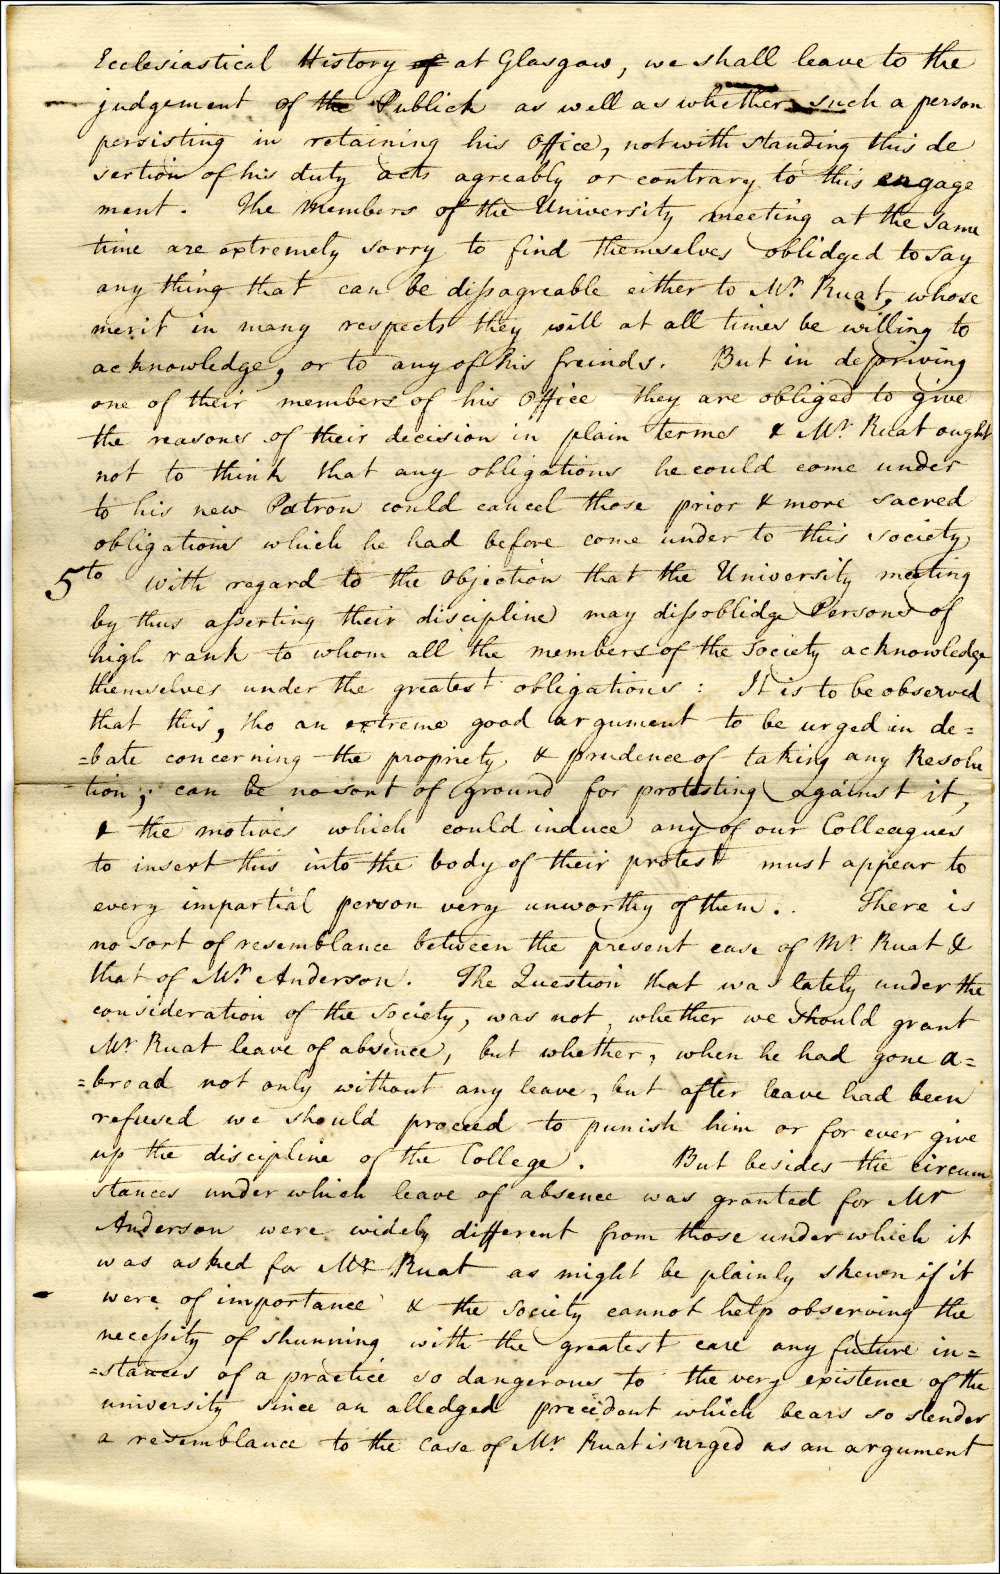 Ecclesiastical History of at Glasgow, we shall leave to the
judgement of the Publick as well as whether such a person
persisting in retaining his Office, notwithstanding this de
sertion of his duty acts agreably or contrary to this engage
ment. The Members of the University meeting at the same
time are extremely sorry to find themselves oblidged to say
any thing that can be dissagreable either to Mr. Ruat, whose
merit in many respects they will at all times be willing to
acknowledge, or to any of his freinds. But in depriving
one of their members of his Office they are obliged to give
the reasones of their decision in plain termes & Mr. Ruat ought
not to think that any obligations he could come under
to his new Patron could cancel those prior & more sacred
obligations which he had before come under to this society
5to with regard to the Objection that the University meeting
by thus asserting their discipline may dissoblidge Persones of
high rank to whom all the members of the Society acknowledge
themselves under the greatest obligations: It is to be observed
that this, tho an extreme good argument to be urged in de=
=bate concerning the propriety & prudence of taking any Resolu
tion; can be no sort of ground for protesting against it,
& the motives which could induce any of our Colleagues
to insert this into the body of their protest must appear to
every impartial person very unworthy of them.. There is
no sort of resemblance between the present case of Mr. Ruat &
that of Mr. Anderson. The Question that was lately under the
consideration of the Society, was not, whether we should grant
Mr Ruat leave of absence, but whether, when he had gone a=
=broad not only without any leave, but after leave had been
refused we should proceed to punish him or for ever give
up the discipline of the College. But besides the circum
stances under which leave of absence was granted for Mr
Anderson were widely different from those under which it
was asked for Mr. Ruat as might be plainly shewn if it
were of importance & the Society cannot help observing the
necessity of shunning with the greatest care any future in=
=stances of a practice so dangerous to the very existence of the
university since an alledged precedent which bears so slender
a resemblance to the case of Mr. Ruat is urged as an argument